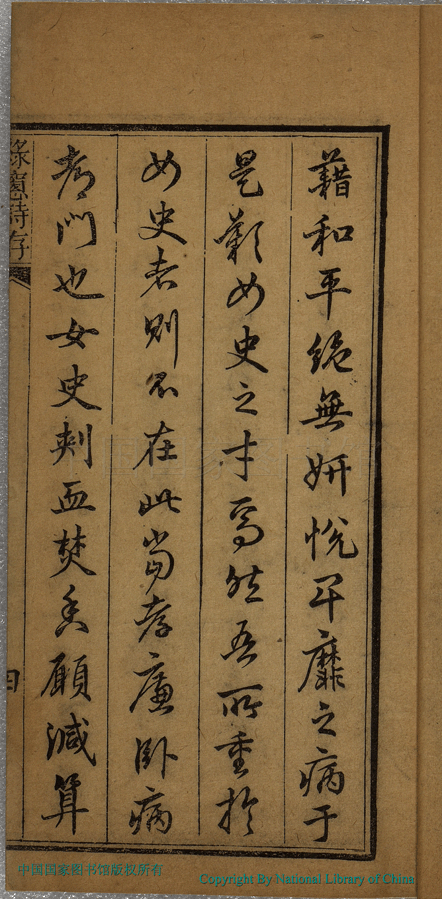 藉和平絕無妍悅卑靡之病于
是歎女史之才焉然吾所重於
女史者則不在此當孝廉臥病
都門也女史刺血焚香願減算
綠窗詩存
四
中国国家图书馆版权所有
Copyright By National Library of China